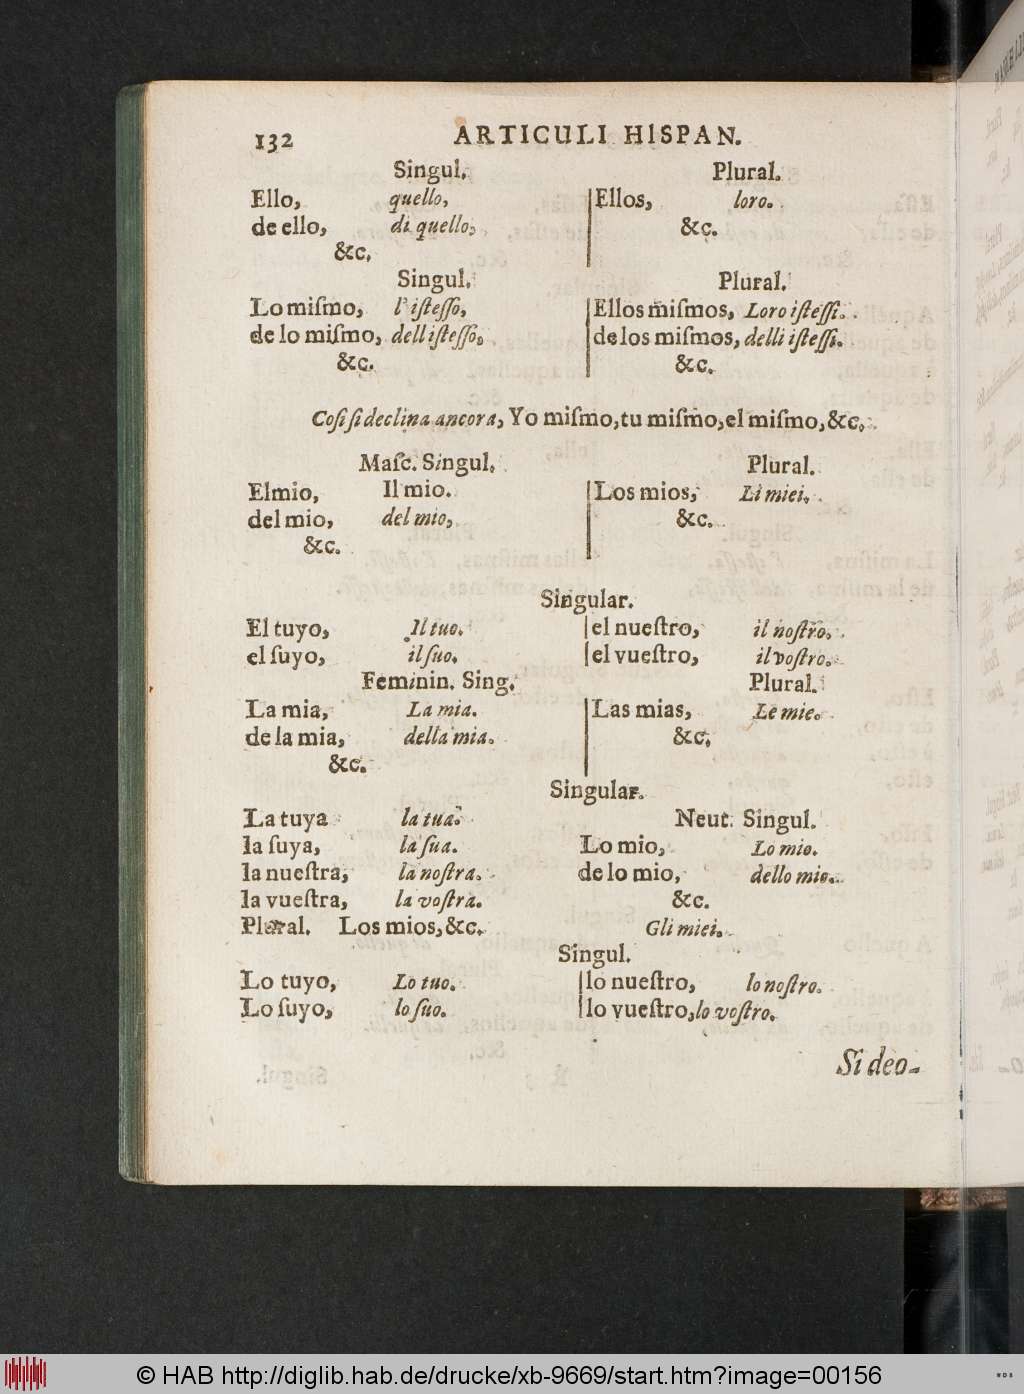 132 ARTICULI HISPAN.
Singul. Plural.
Ello, quello, Ellos, loro.
de ello, di quello, &c.
&c.
Singul. Plural.
Lo miſmo, l'iſteſſo, Ellos miſmos, Loro iſteſſi.
de lo miſmo, dell iſteſſo, de los miſmos, delli iſteſſi.
&c. &c.
Coſi ſi declina ancora, Yo miſmo, tu miſmo, el miſmo, &c.
Maſc. Singul. Plural.
El mio, Il mio. Los mios, Li miei.
del mio, del mio, &c.
&c.
Singular.
El tuyo, Il tuo. el nueſtro, il noſtro.
el ſuyo, il ſuo. el vueſtro, il voſtro.
Feminin. Sing. Plural.
La mia, La mia. Las mias, Le mie.
de la mia, della mia. &c.
&c.
Singular.
La tuya la tua. Neut. Singul.
la ſuya, la ſua. Lo mio, Lo mio.
la nueſtra, la noſtra. de lo mio, dello mio.
la vueſtra, la voſtra. &c.
Plural. Los mios, &c. Gli miei.
Singul.
Lo tuyo, Lo tuo. lo nueſtro, lo noſtro.
Lo ſuyo, lo ſuo. lo vueſtro, lo voſtro.
Si deo-
© HAB http://diglib.hab.de/drucke/xb-9669/start.htm?image=00156